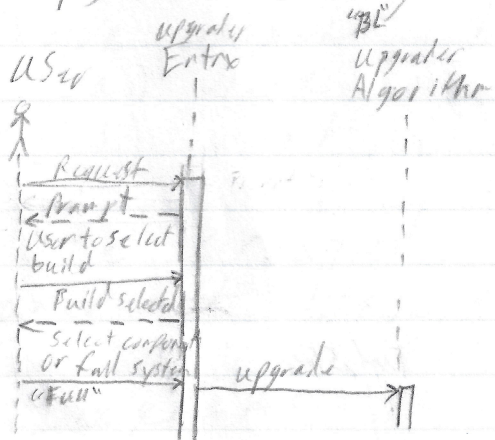 "BL"
upgrader
Entry
User
Upgrader
Algorithm
Request
Prompt
User to select
build
Build selected
Select component
or full system
"Full"
upgrade